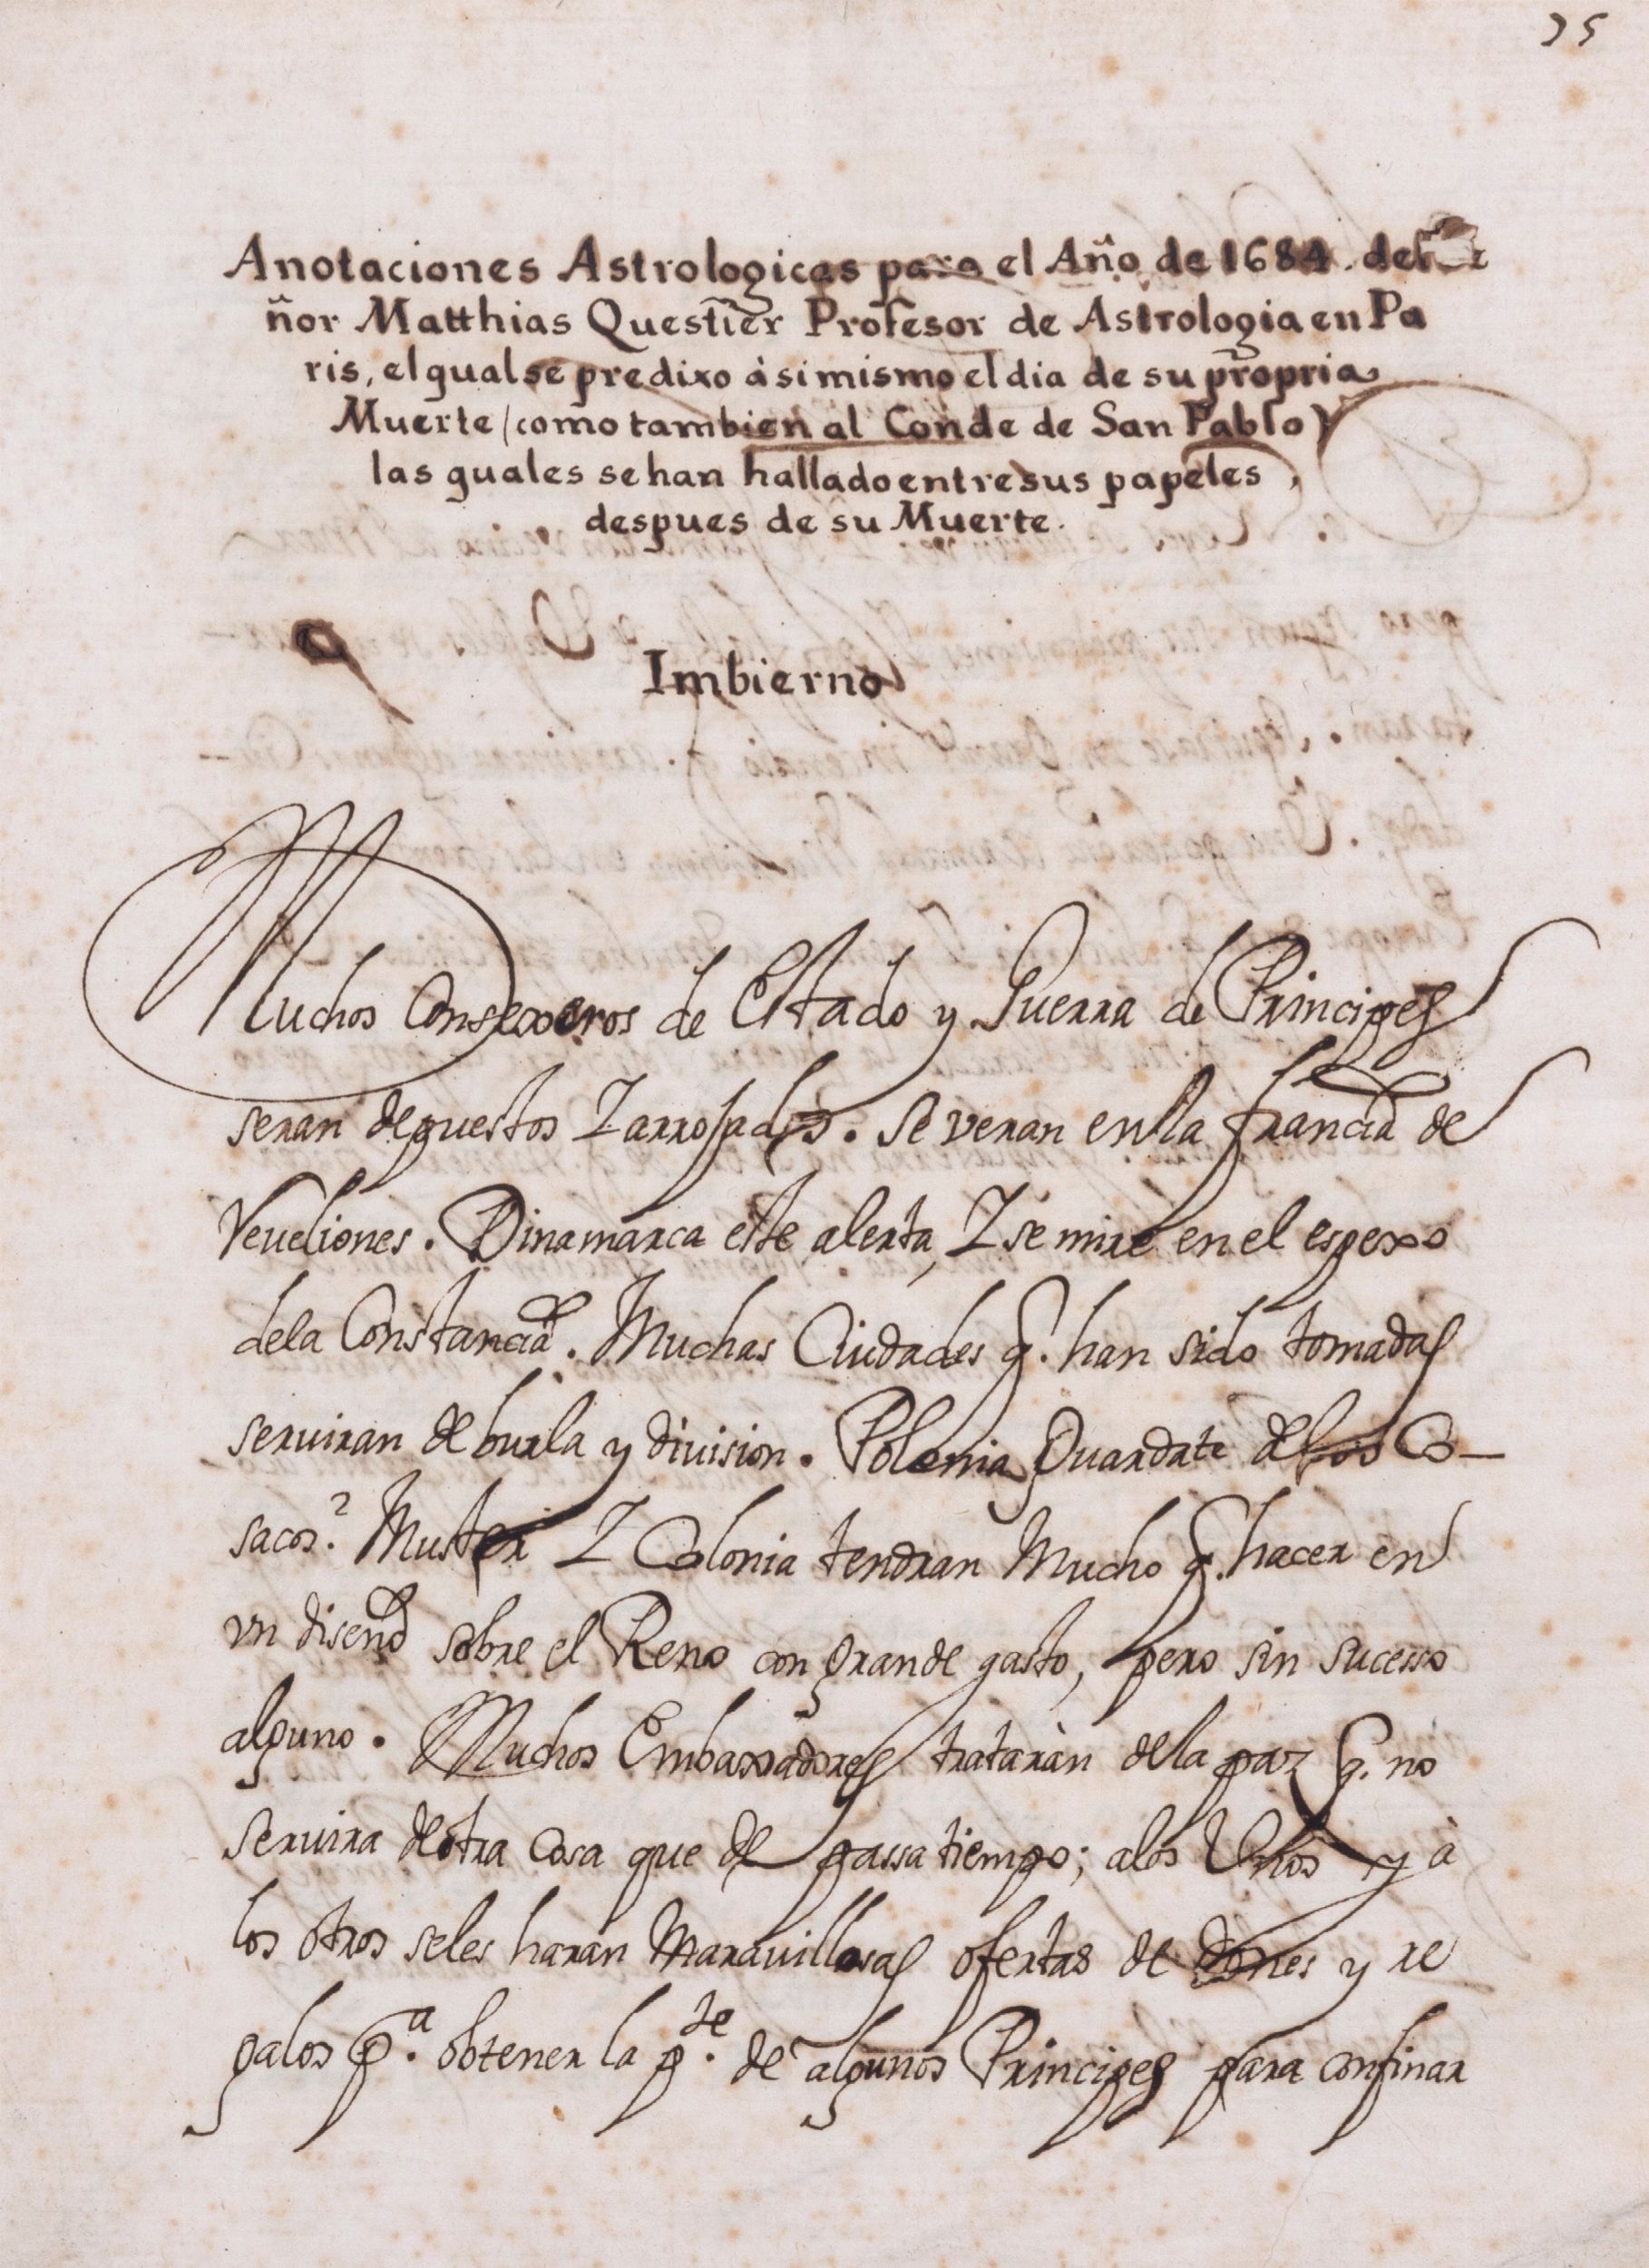 35
Anotaciones Astrologicas para el Año de 1684. del
ñor Matthias Questier Profesor de Astrologia en Pa
ris, el qual se predixo à si mismo el dia de su propria
Muerte (como tambien al Conde de San Pablo)
las quales se han hallado entre sus papeles,
despues de su Muerte.
Imbierno
Muchos Consexeros de Estado y Guerra de Principes
seran depuestos Y arrojados. Se veran en la francia de
Veueliones. Dinamarca este alerta, Y se mire en el espexo
dela Constancia. Muchas Ciudades q. han sido tomadas
seruiran de burla y diuision. Polonia Guardate de los Co-
sacos. Muster Y Colonia tendran Mucho q. hacer en
vn diseno sobre el Reno con grande gasto, pero sin sucesso
alguno. Muchos Embaxadores trataràn dela paz q. no
seruira de otra Cosa que de passa tiempo; alos Unos y à
los otros seles haran Marauillosas ofertas de dones y re
galos p.a obtener la p.te de algunos Principes para confinar